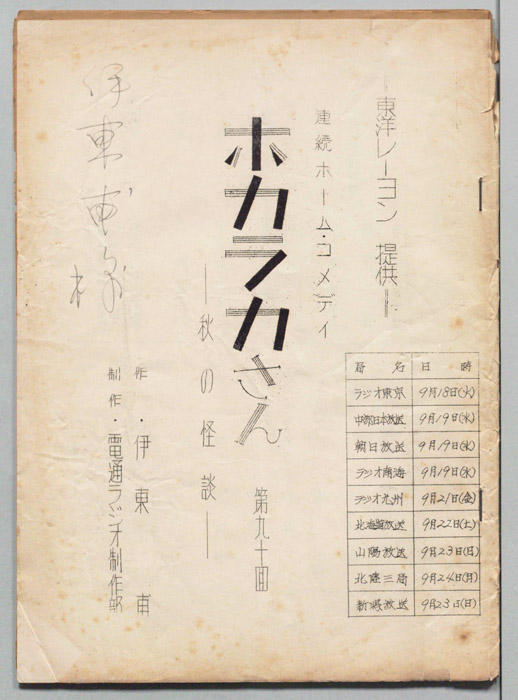 ―東洋レーヨン 提供―
連続ホーム・コメディ
ホカラカさん
第九十回
―秋の怪談―
作・伊東
制作・電通ラジオ制作部
伊東
様
局名 日時
ラジオ東京 9月18日(火)
中部日本放送 9月19日(水)
朝日放送 9月19日(水)
ラジオ南海 9月19日(水)
ラジオ九州 9月21日(金)
北海道放送 9月22日(土)
山陽放送 9月23日(日)
北陸三局 9月24日(月)
新潟放送 9月23日(日)